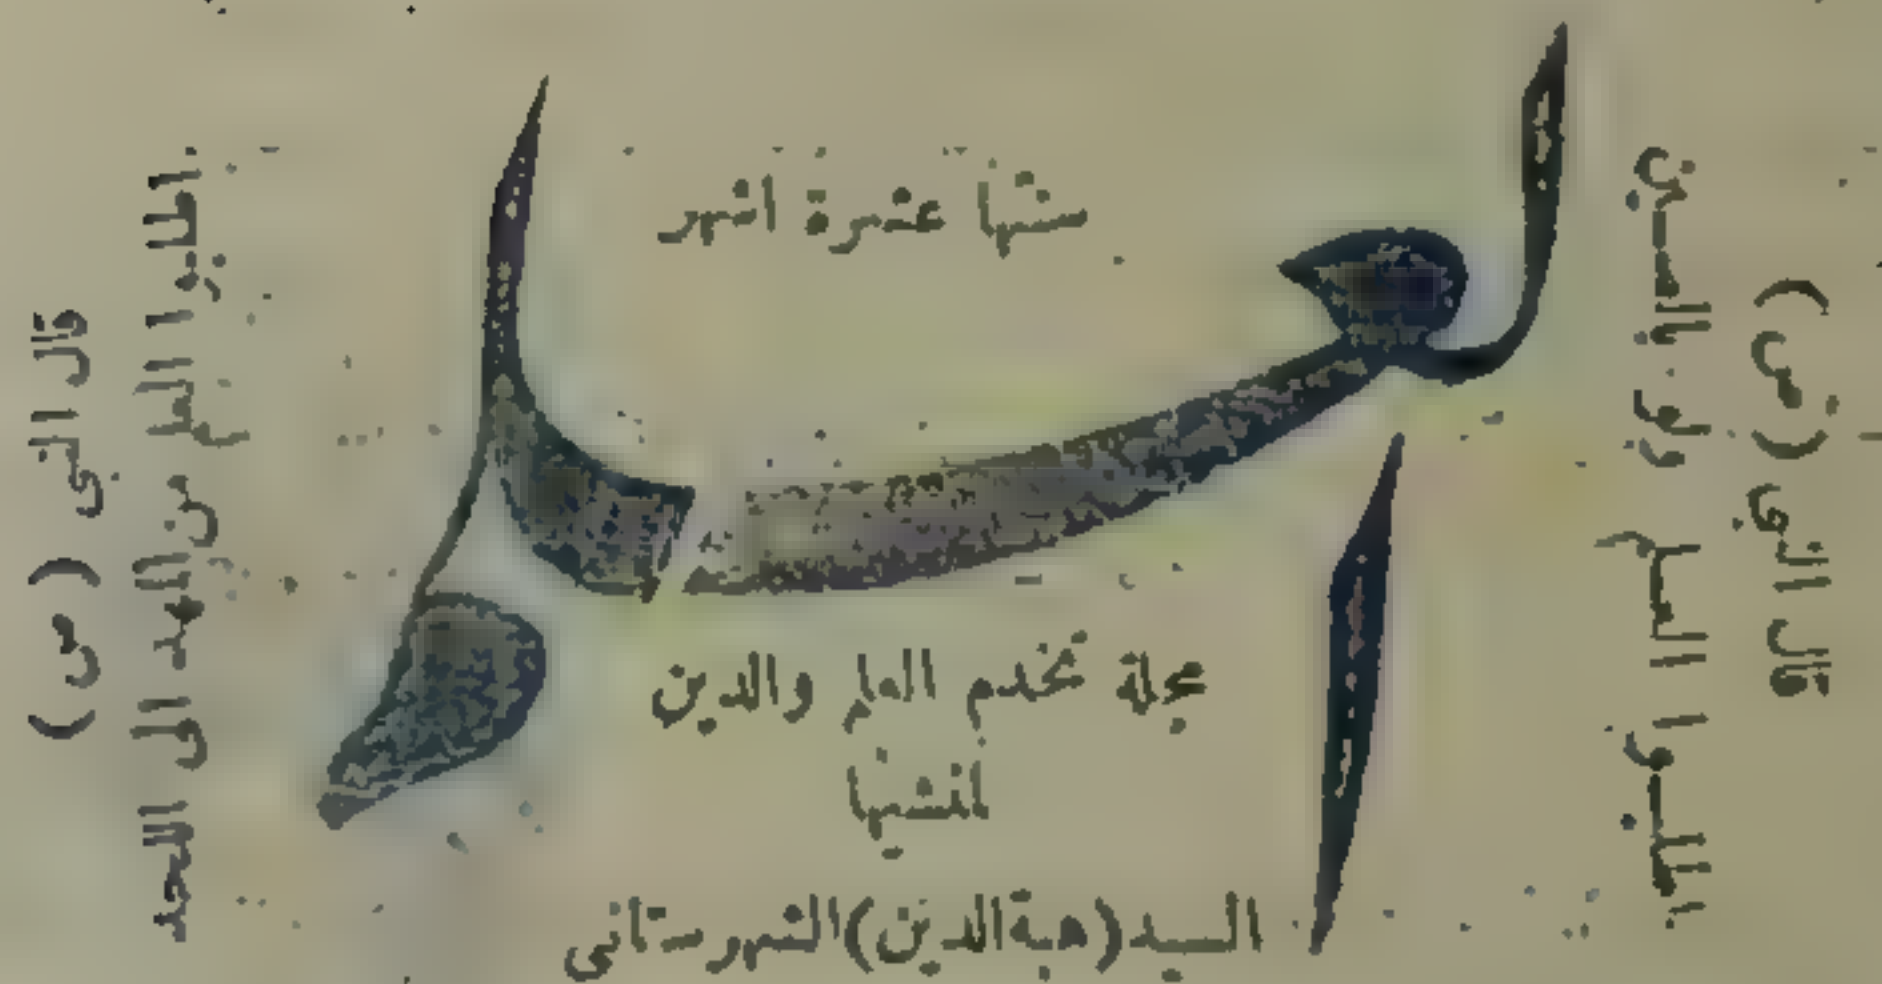 العلم
سنتها عشرة اشهر
مجلة تخدم العلم والدين
لمنشيها
السيد (هبة الدين) الشهرستاني
قال النبي (ص)
اطلبوا العلم ولو بالصين
قال النبي (ص)
اطلبوا العلم من المهد الى اللحد